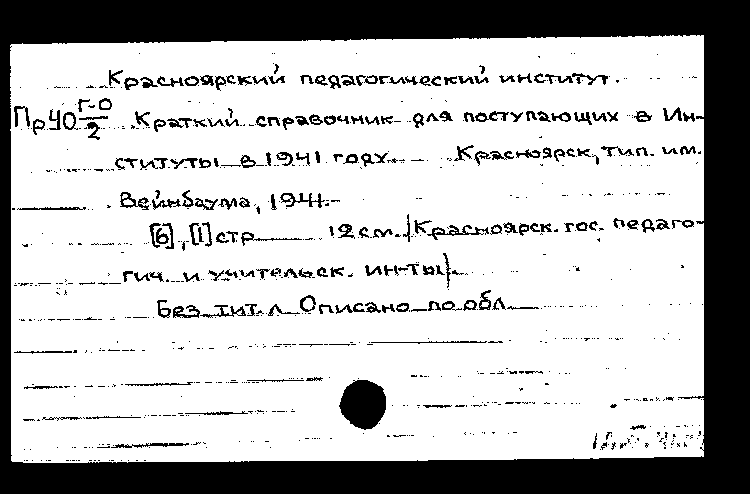 Красноярский педагогический институт.
Пр40 Г-0/2 Краткий справочник для поступающих в Ин-
ституты в 1941 году. Красноярск, тип. им.
Вейнбаума, 1941.-
[6], [1] стр 12 см. (Красноярск. гос. педаго-
гич. и учительск. ин-ты).
Без тит. л Описано по обл